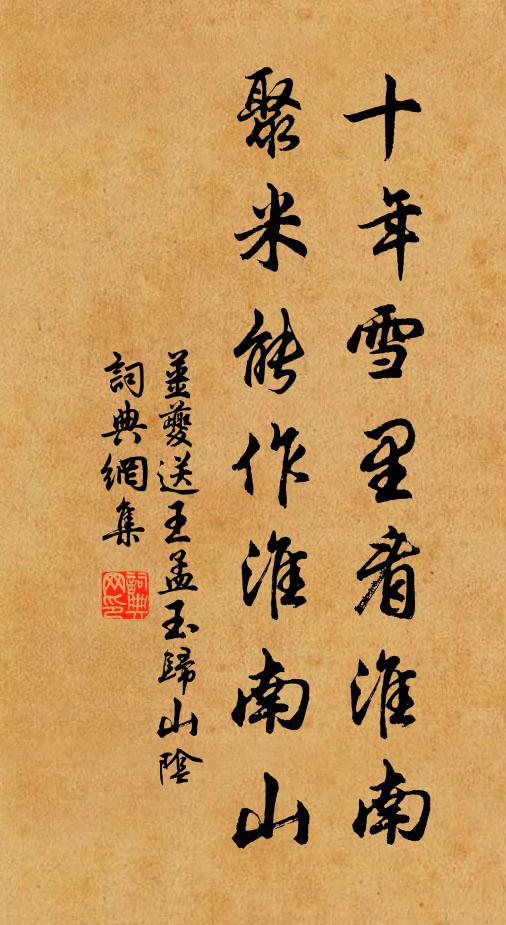 十年雪里看淮南
聚米能作淮南山
姜夔送王孟玉歸山陰
詞典網集
詞典网印